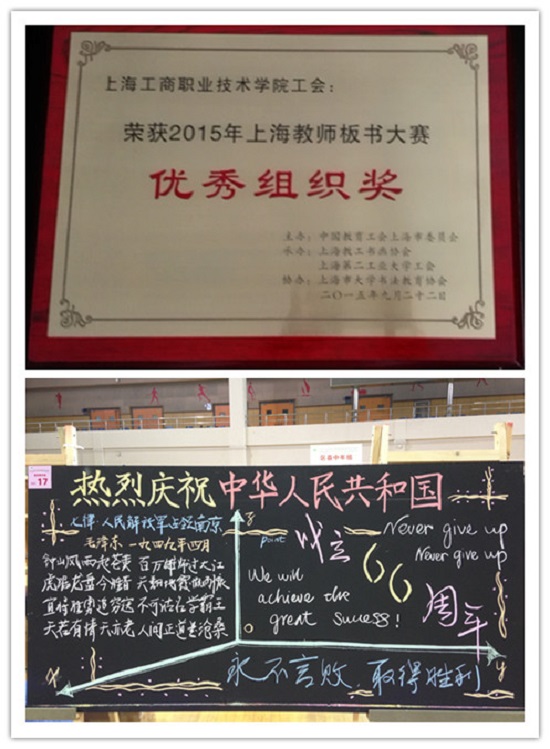 上海工商职业技术学院工会：
荣获2015年上海教师板书大赛
优秀组织奖
主办：中国教育工会上海市委员会
承办：上海教工书画协会
上海第二工业大学工会
协办：上海市大学书法教育协会
二〇一五年九月二十二日
17
热烈庆祝中华人民共和国
成立66周年
七律·人民解放军占领南京
毛泽东 一九四九年四月
钟山风雨起苍黄 百万雄师过大江
虎踞龙盘今胜昔 天翻地覆慨而慷
宜将胜勇追穷寇 不可沽名学霸王
天若有情天亦老 人间正道是沧桑
z
point
Never give up
Never give up
We will
achieve the
great success!
x
y
永不言败 取得胜利